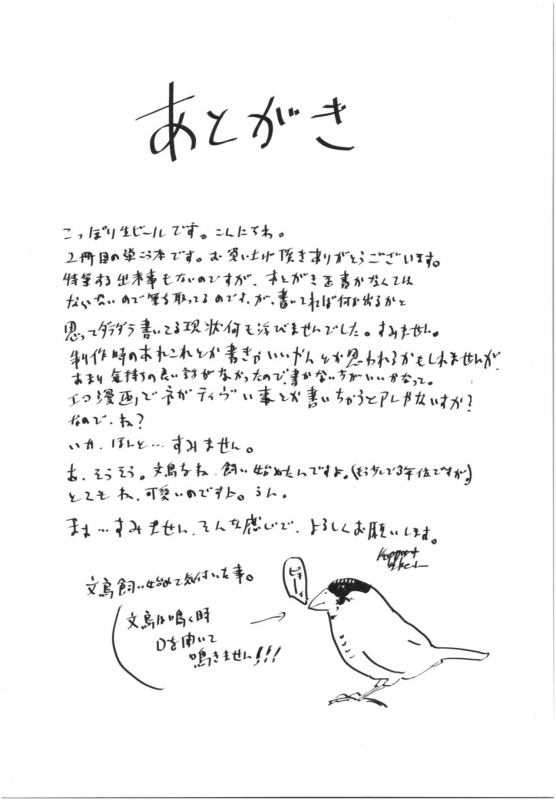 あとがき
こっぽり生ビールです。こんにちわ。
2冊目の単コウ本です。お買い上げ頂きありがとうございます。
特筆する出来事もないのですが、あとがきを書かなくては
ならないので筆を取ってるのですが、書いてれば何か出るかと
思ってダラダラ書いてる現状何も浮びませんでした。すみません。
制作時のあれこれとか書きゃいいじゃんとか思われるかもしれませんが、
あまり気持ちの良い話がなかったので、書かない方がいいかなって。
エロ漫画でネガティヴい事とか書いちゃうとアレじゃないすか？
なので、ね？
いか、ほんと…すみません。
あ、そうそう。文鳥をね、飼い始めたんですよ。(もう少しで3年位ですが。)
とてもね、可愛いのですよ。うん。
まぁ…すみません、そんな感じで、よろしくお願いします。
文鳥飼い始めて気付いた事。
文鳥は鳴く時
口を開いて
鳴きません!!!